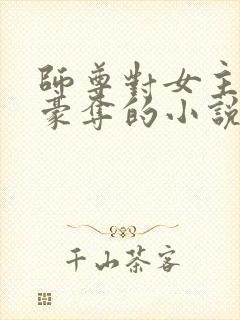 師尊對女主
豪奪的小說
千山茶客